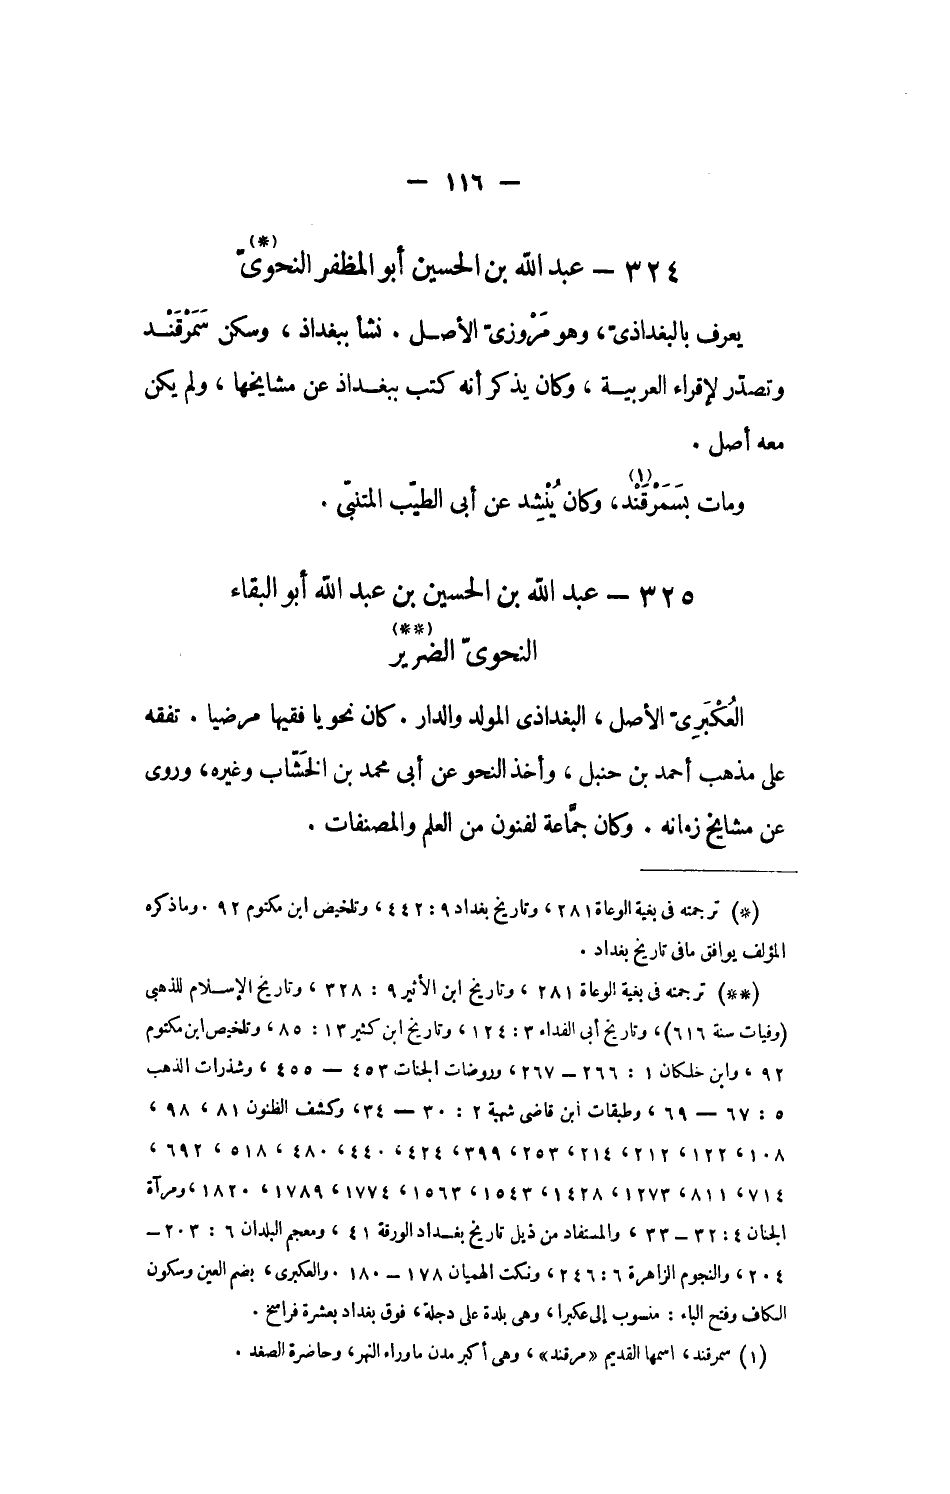 — ١١٦ —
٣٢٤ — عبد الله بن الحسين أبو المظفر النحوىّ (*)
يعرف بالبغداذىّ، وهو مَرْوزىّ الأصل . نشأ ببغداذ ، وسكن سَمَرْقَنْد
وتصدّر لإقراء العربية ، وكان يذكر أنه كتب ببغداذ عن مشايخها ، ولم يكن
معه أصل .
ومات بسَمَرْقَنْد(١)، وكان يُنْشِد عن أبى الطيّب المتنبّى .
٣٢٥ — عبد الله بن الحسين بن عبد الله أبو البقاء
النحوىّ الضرير (**)
العُكْبَرِىّ الأصل ، البغداذى المولد والدار . كان نحويا فقيها مرضيا . تفقه
على مذهب أحمد بن حنبل ، وأخذ النحو عن أبى محمد بن الخَشّاب وغيره، وروى
عن مشايخ زمانه . وكان جمَّاعة لفنون من العلم والمصنفات .
(*) ترجمته فى بغية الوعاة ٢٨١ ، وتاريخ بغداد ٩ : ٤٤٢ ، وتلخيص ابن مكتوم ٩٢ . وماذكره
المؤلف يوافق مافى تاريخ بغداد .
(**) ترجمته فى بغية الوعاة ٢٨١ ، وتاريخ ابن الأثير ٩ : ٣٢٨ ، وتاريخ الإسلام للذهبى
(وفيات سنة ٦١٦)، وتاريخ أبى الفداء ٣ : ١٢٤ ، وتاريخ ابن كثير ١٣ : ٨٥ ، وتلخيص ابن مكتوم
٩٢ ، وابن خلكان ١ : ٢٦٦ — ٢٦٧ ، وروضات الجنات ٤٥٣ — ٤٥٥ ، وشذرات الذهب
٥ : ٦٧ — ٦٩ ، وطبقات ابن قاضى شهبة ٢ : ٣٠ — ٣٤، وكشف الظنون ٨١ ، ٩٨ ،
١٠٨، ١٢٢، ٢١٢، ٢١٤، ٢٥٣، ٣٩٩، ٤٢٤، ٤٤٠، ٤٨٠ ، ٥١٨ ، ٦٩٢ ،
٧١٤، ٨١١، ١٢٧٣، ١٤٢٨، ١٥٤٣، ١٥٦٣، ١٧٧٤، ١٧٨٩، ١٨٢٠ ، ومرآة
الجنان ٤ : ٣٢ — ٣٣ ، والمستفاد من ذيل تاريخ بغداد الورقة ٤١ ، ومعجم البلدان ٦ : ٢٠٣ —
٢٠٤ ، والنجوم الزاهرة ٦ : ٢٤٦ ، ونكت الهميان ١٧٨ — ١٨٠ . والعكبرى ، بضم العين وسكون
الكاف وفتح الباء : منسوب إلى عكبرا ، وهى بلدة على دجلة ، فوق بغداد بعشرة فراسخ .
(١) سمرقند ، اسمها القديم «مرقند» ، وهى أكبر مدن ماوراء النهر، وحاضرة الصغد .